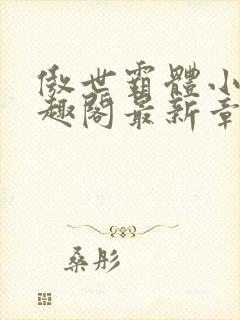 傲世霸體小
趣閣最新章
桑彤